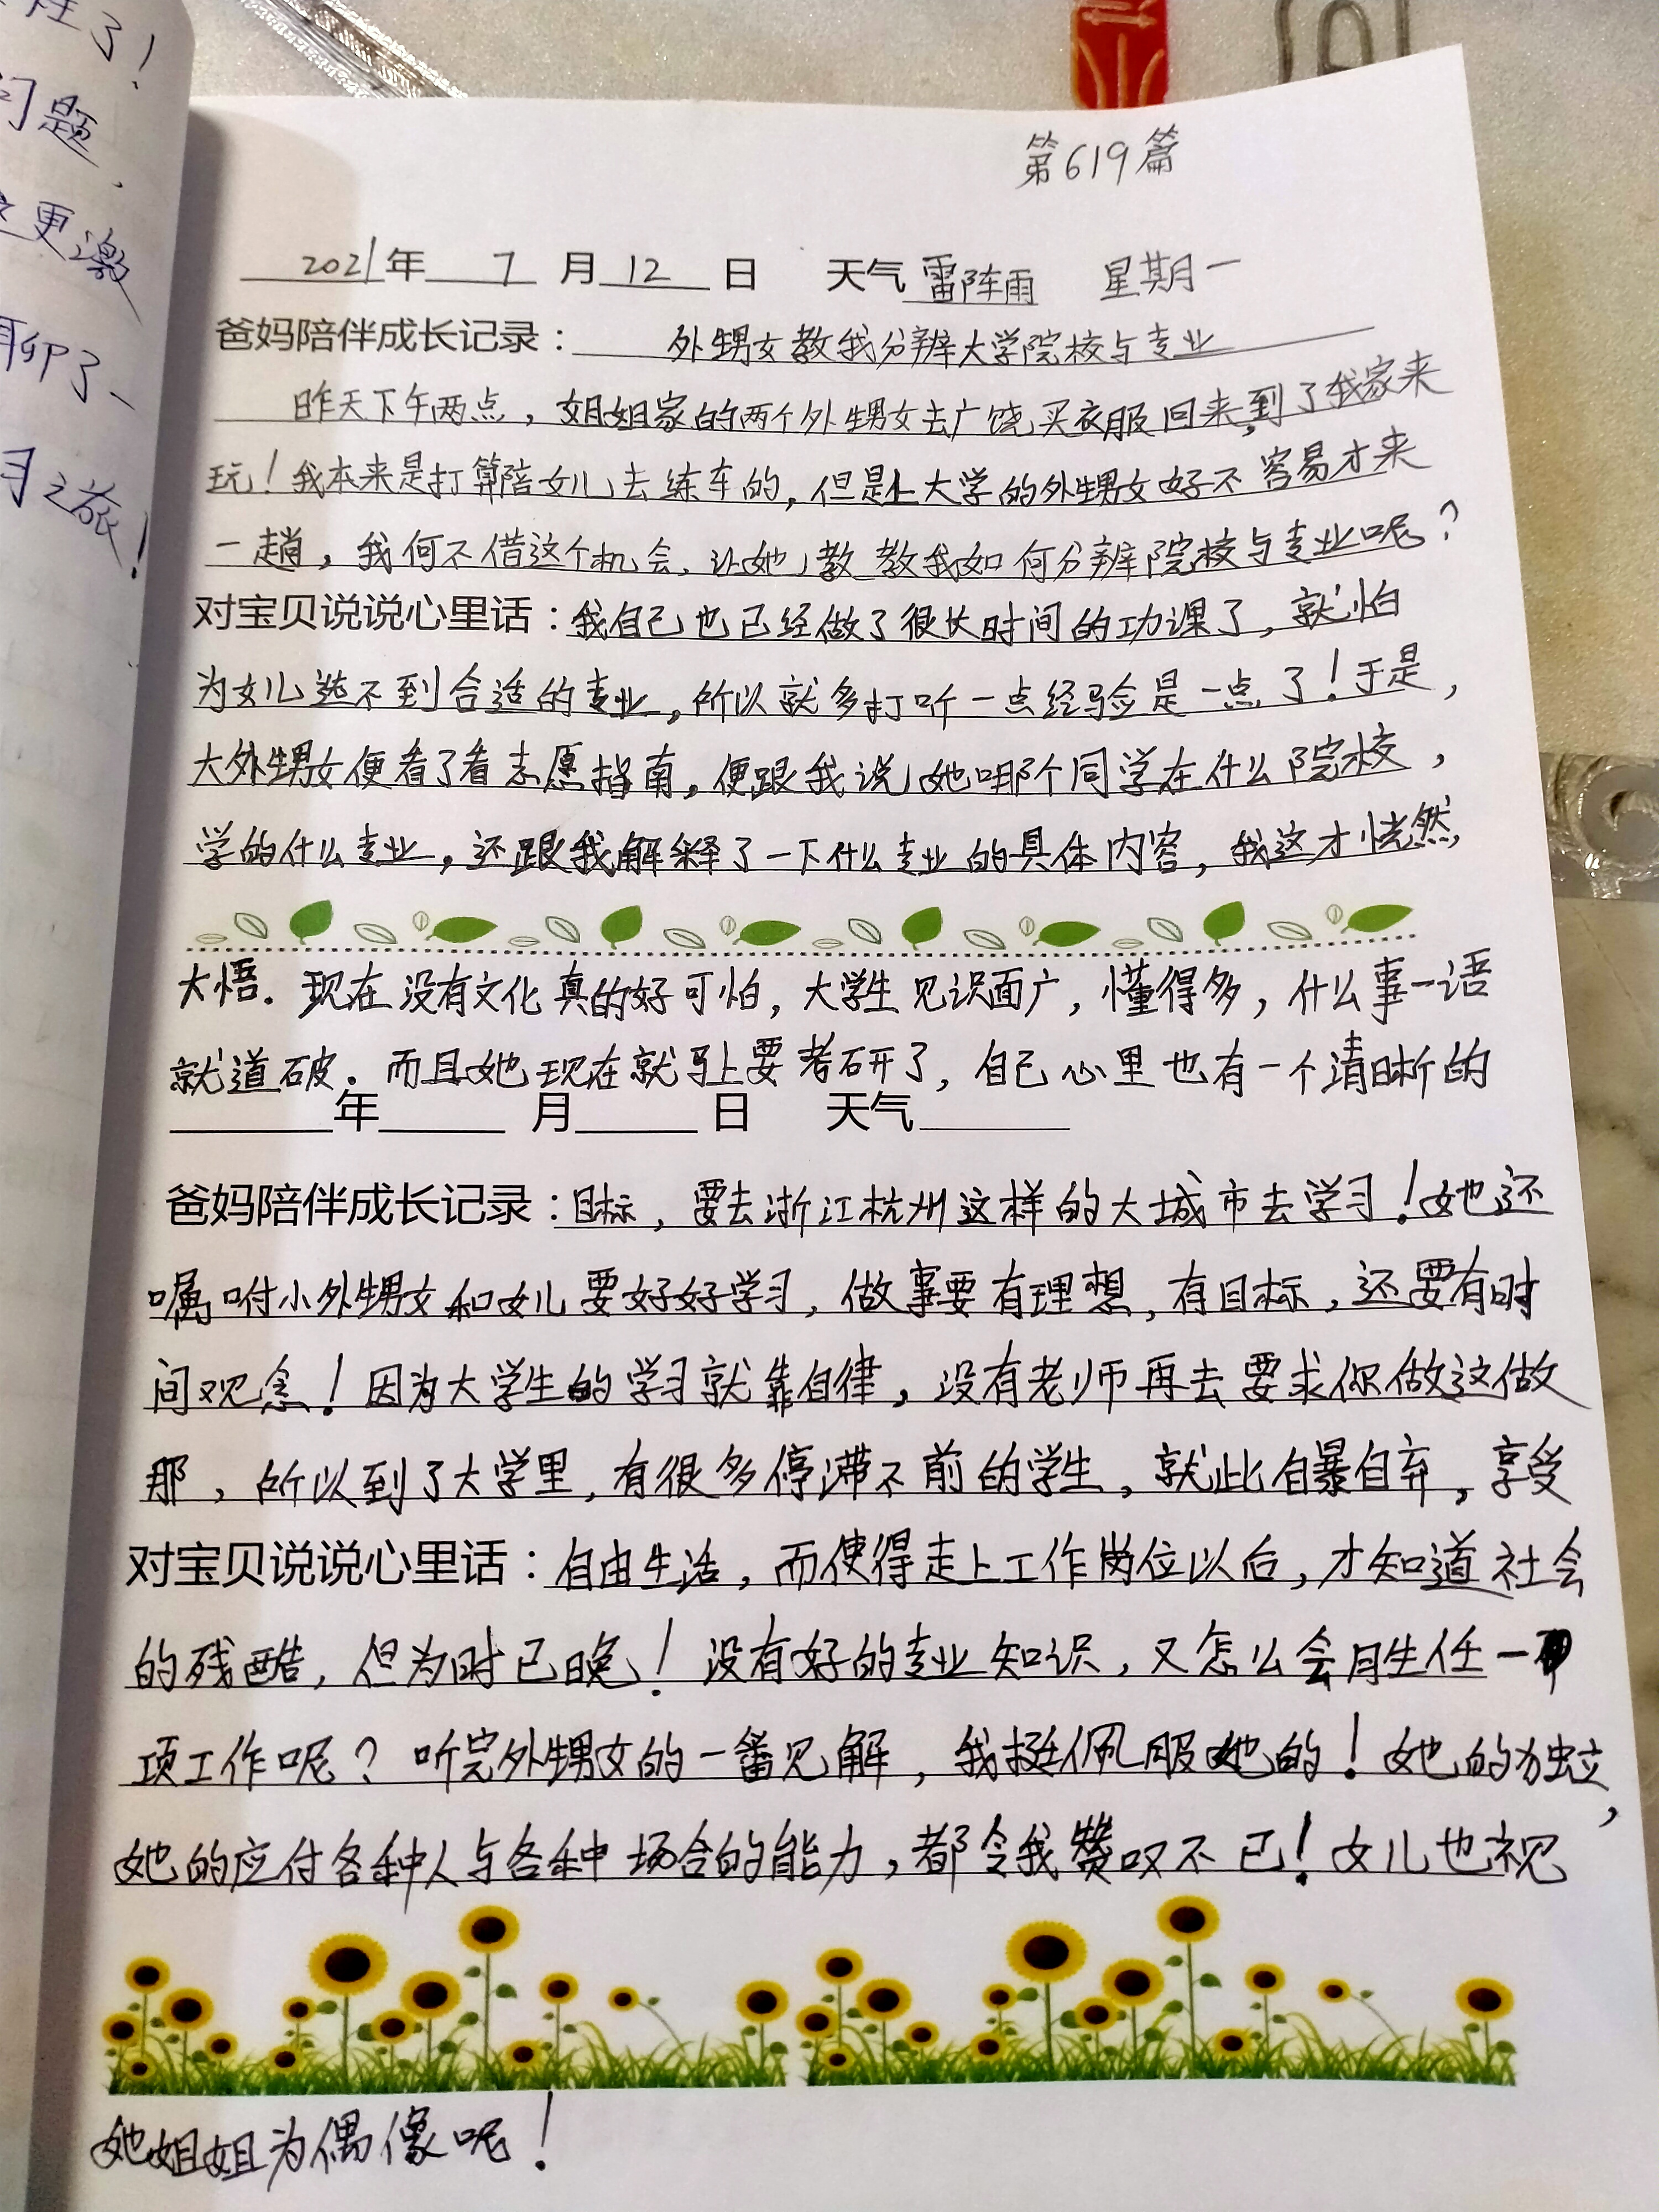 性了!
问题，
这更激
聊了、
习之旅!
第619篇
2021年 7 月 12 日 天气 雷阵雨 星期一
爸妈陪伴成长记录： 外甥女教我分辨大学院校与专业
昨天下午两点，姐姐家的两个外甥女去广饶买衣服回来，到了我家来
玩！我本来是打算陪女儿去练车的，但是上大学的外甥女好不容易才来
一趟，我何不借这个机会，让她教教我如何分辨院校与专业呢？
对宝贝说说心里话：我自己也已经做了很长时间的功课了，就怕
为女儿选不到合适的专业，所以就多打听一点经验是一点了！于是，
大外甥女便看了看志愿指南，便跟我说她哪个同学在什么院校，
学的什么专业，还跟我解释了一下什么专业的具体内容，我这才恍然
大悟。现在没有文化真的好可怕，大学生见识面广，懂得多，什么事一语
就道破。而且她现在就马上要考研了，自己心里也有一个清晰的
年 月 日 天气
爸妈陪伴成长记录：目标，要去浙江杭州这样的大城市去学习！她还
嘱咐小外甥女和女儿要好好学习，做事要有理想，有目标，还要有时
间观念！因为大学生的学习就靠自律，没有老师再去要求你做这做
那，所以到了大学里，有很多停滞不前的学生，就此自暴自弃，享受
对宝贝说说心里话：自由生活，而使得走上工作岗位以后，才知道社会
的残酷，但为时已晚！没有好的专业知识，又怎么会胜任一
项工作呢？听完外甥女的一番见解，我挺佩服她的！她的独立，
她的应付各种人与各种场合的能力，都令我赞叹不已！女儿也视
她姐姐为偶像呢！